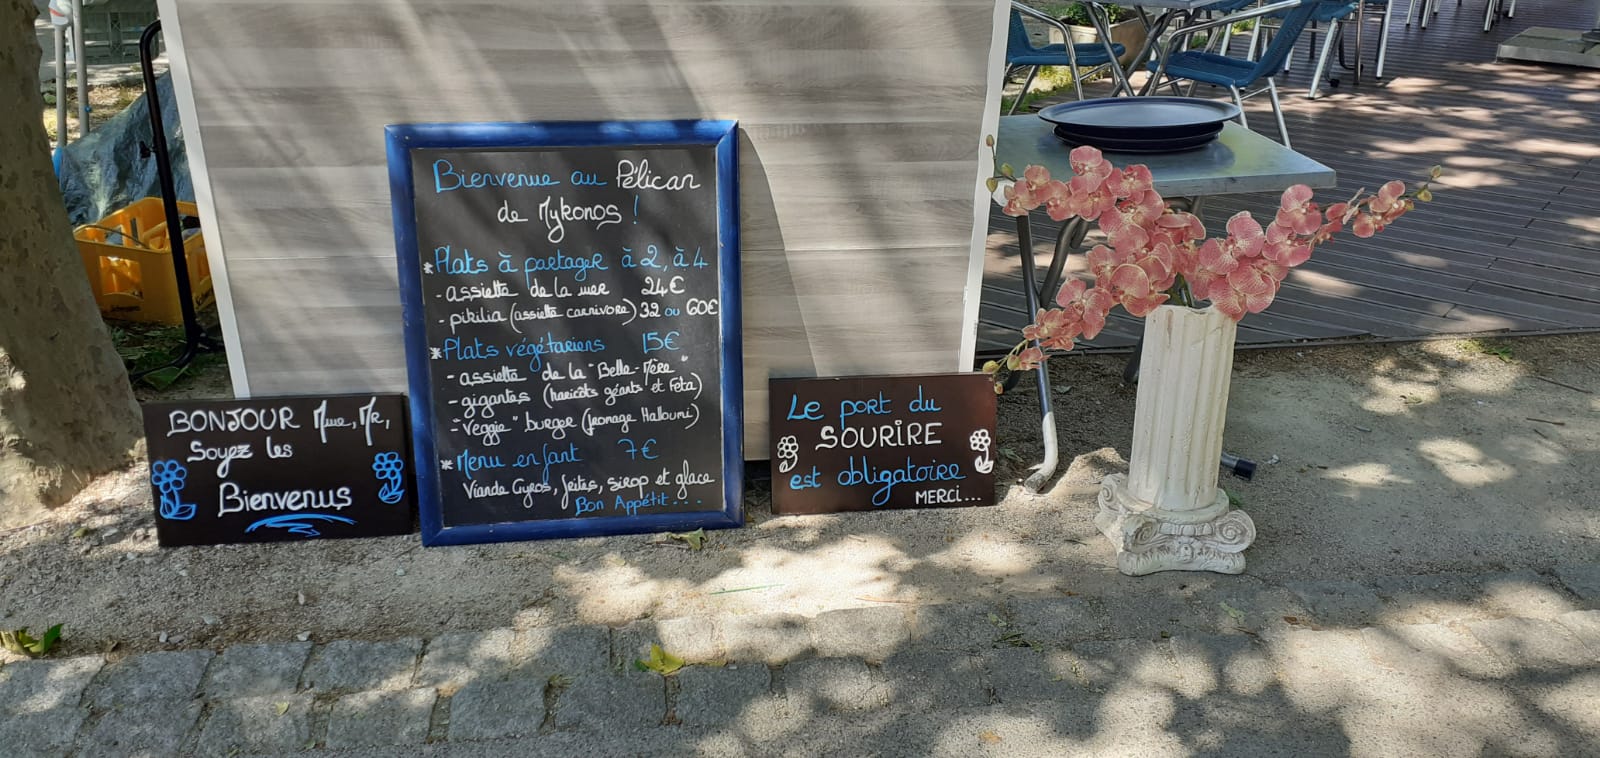 BONJOUR Mme, Mr,
Soyez les
Bienvenus
Bienvenue au Pélican
de Mykonos !
* Plats à partager à 2, à 4
- assiette de la mer 24€
- pikilia (assiette carnivore) 32 ou 60€
* Plats végétariens 15€
- assiette de la "Belle-Mère"
- gigantes (haricots géants et Feta)
- "veggie" burger (fromage Halloumi)
* Menu enfant 7€
Viande Gyros, frites, sirop et glace
Bon Appétit...
Le port du
SOURIRE
est obligatoire
MERCI...